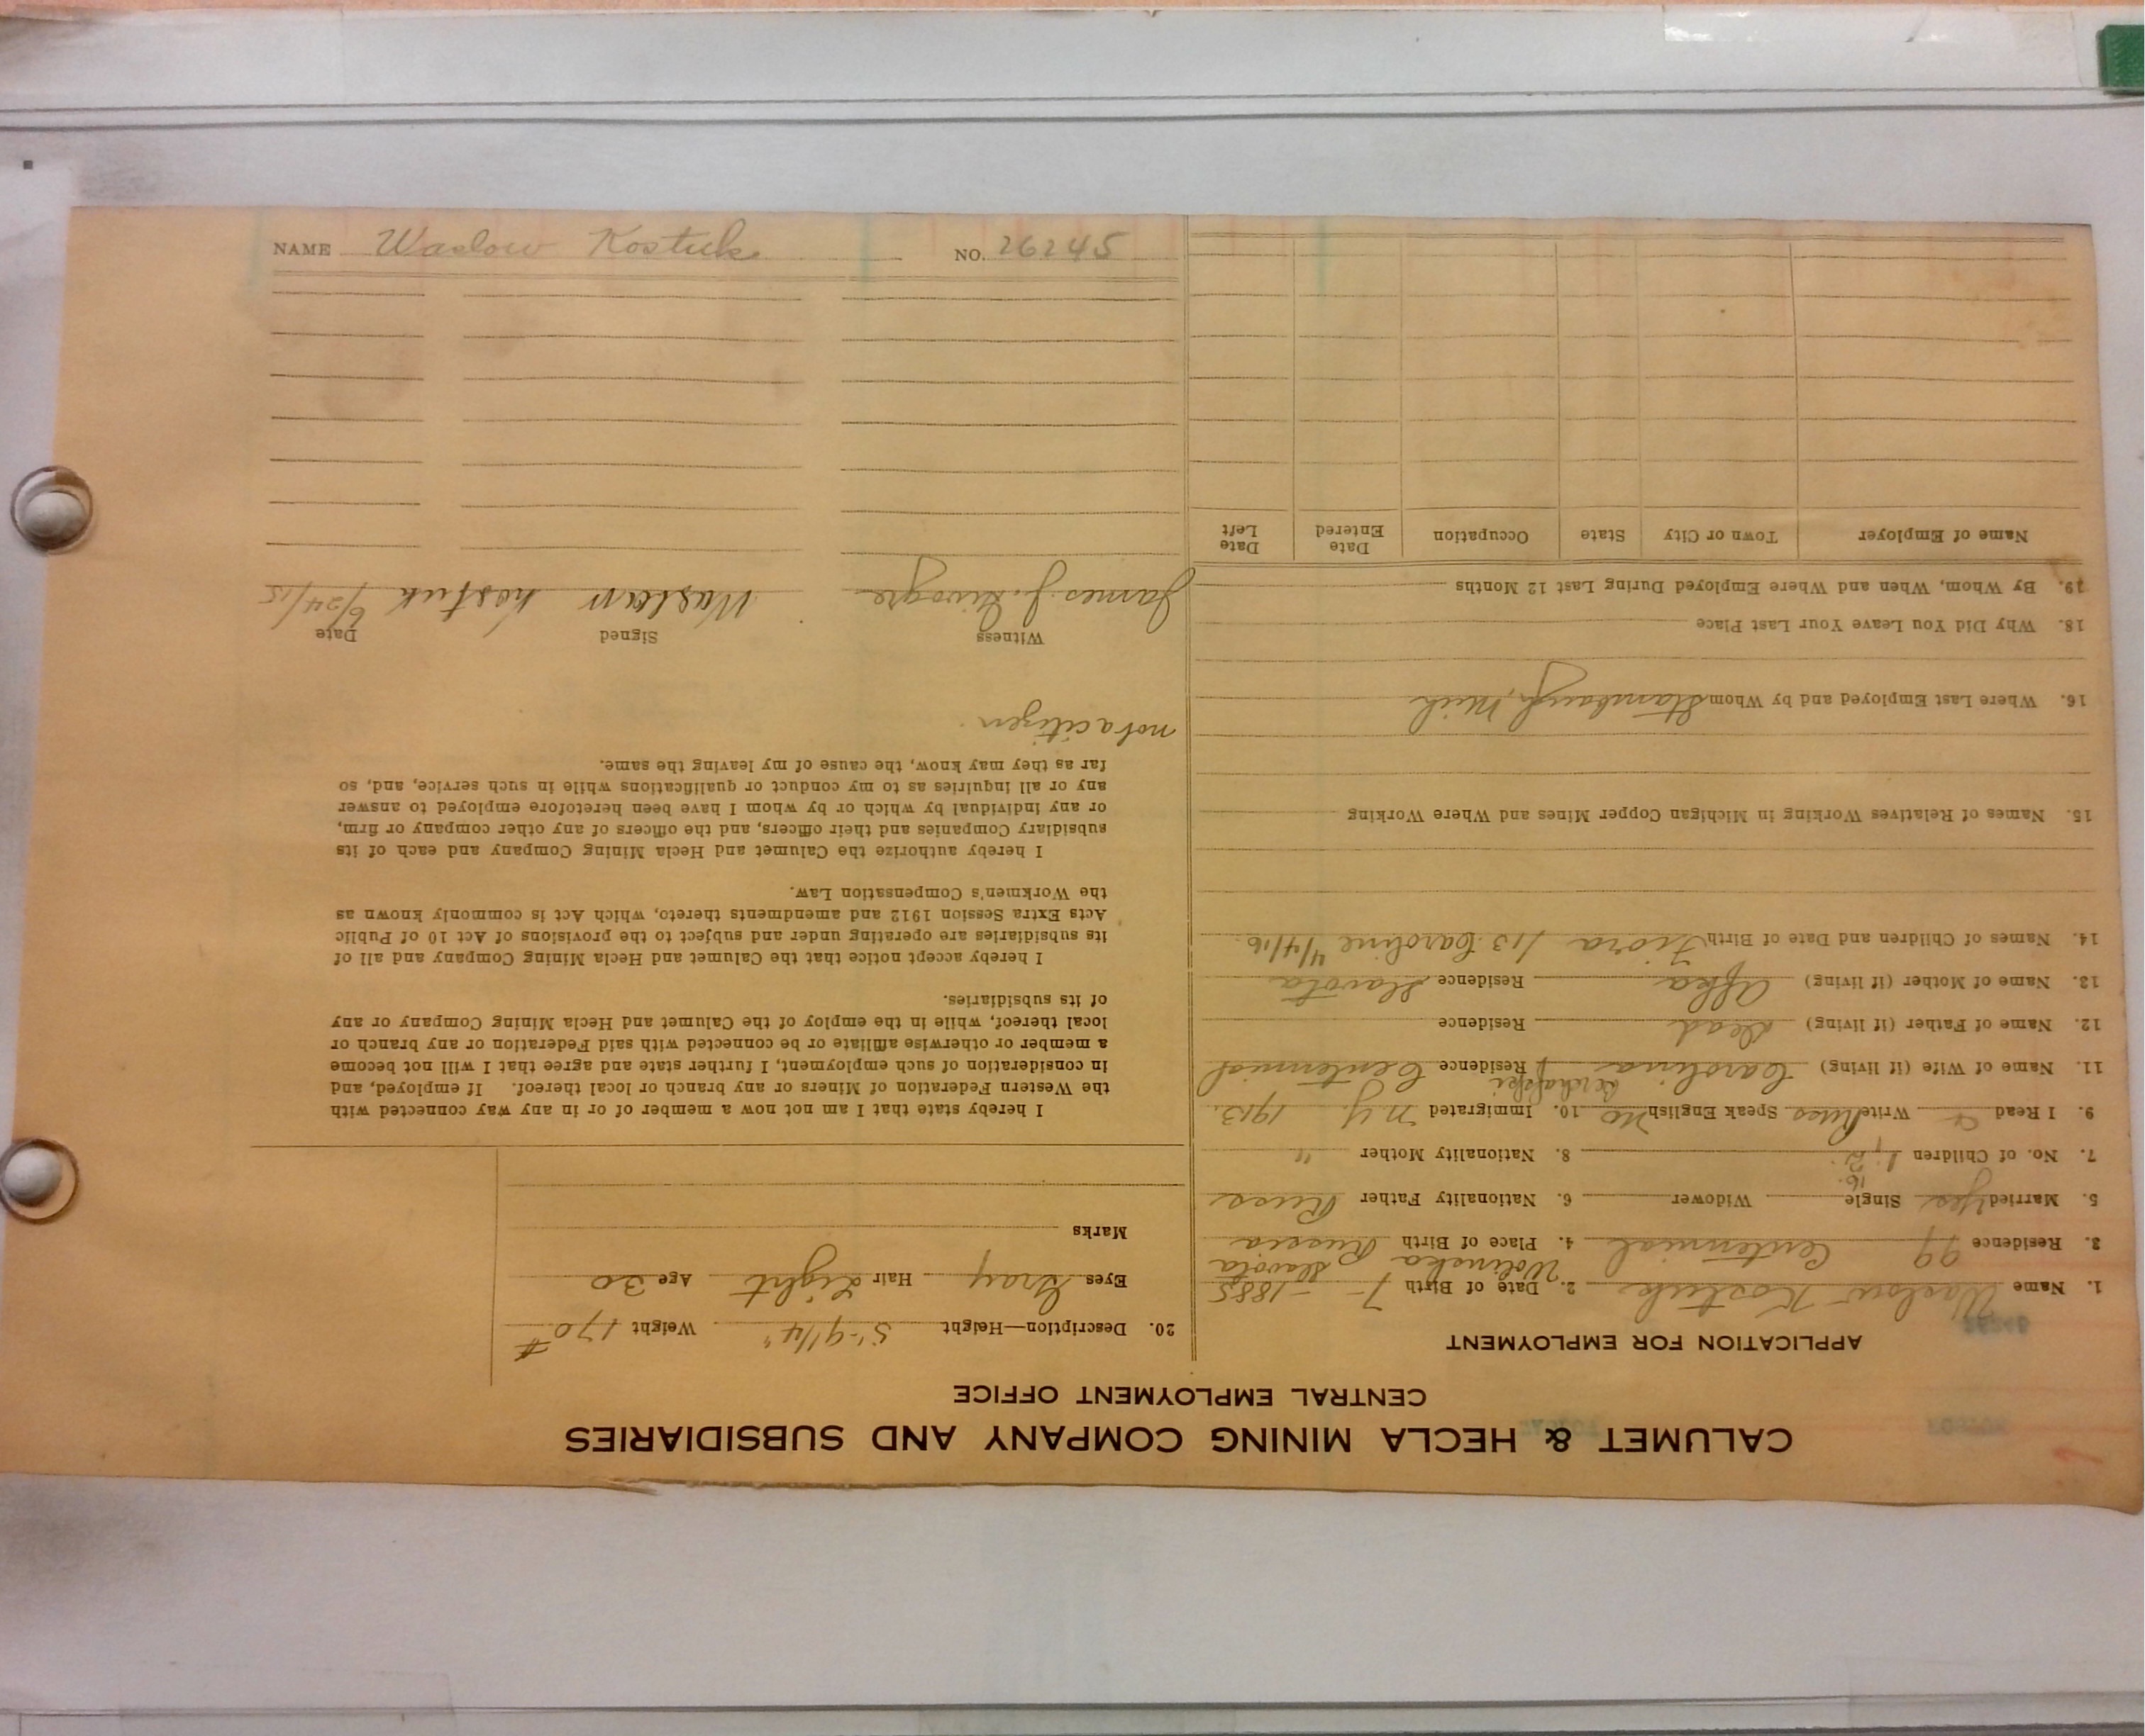 CALUMET & HECLA MINING COMPANY AND SUBSIDIARIES
CENTRAL EMPLOYMENT OFFICE
APPLICATION FOR EMPLOYMENT
1. Name Waslow Kostuk 2. Date of Birth 7 - - 1885
Wolinska Slavota
3. Residence 99 Centennial 4. Place of Birth Russia
5. Married Yes Single Widower 6. Nationality Father Russ
16.
7. No. of Children 1, 2. 8. Nationality Mother "
9. I Read & Write Russ Speak English No 10. Immigrated N.Y. 1913.
11. Name of Wife (if living) Carolina Residence Centennial
12. Name of Father (if living) Dead Residence
13. Name of Mother (if living) Residence Slavota
14. Names of Children and Date of Birth /13 Caroline 4/4/16.
15. Names of Relatives Working in Michigan Copper Mines and Where Working
16. Where Last Employed and by Whom Stambaugh, Mich
18. Why Did You Leave Your Last Place
19. By Whom, When and Where Employed During Last 12 Months
Name of Employer Town or City State Occupation Date Entered Date Left
20. Description—Height 5'-9 1/4" Weight 170 #
Eyes Gray Hair Light Age 30
Marks
I hereby state that I am not now a member of or in any way connected with
the Western Federation of Miners or any branch or local thereof. If employed, and
in consideration of such employment, I further state and agree that I will not become
a member or otherwise affiliate or be connected with said Federation or any branch or
local thereof, while in the employ of the Calumet and Hecla Mining Company or any
of its subsidiaries.
I hereby accept notice that the Calumet and Hecla Mining Company and all of
its subsidiaries are operating under and subject to the provisions of Act 10 of Public
Acts Extra Session 1912 and amendments thereto, which Act is commonly known as
the Workmen's Compensation Law.
I hereby authorize the Calumet and Hecla Mining Company and each of its
subsidiary Companies and their officers, and the officers of any other company or firm,
or any individual by which or by whom I have been heretofore employed to answer
any or all inquiries as to my conduct or qualifications while in such service, and, so
far as they may know, the cause of my leaving the same.
not a citizen
Witness Signed Date
James J. Waslaw Kostuk 6/24/15
NAME Waslow Kostuk NO. 26245